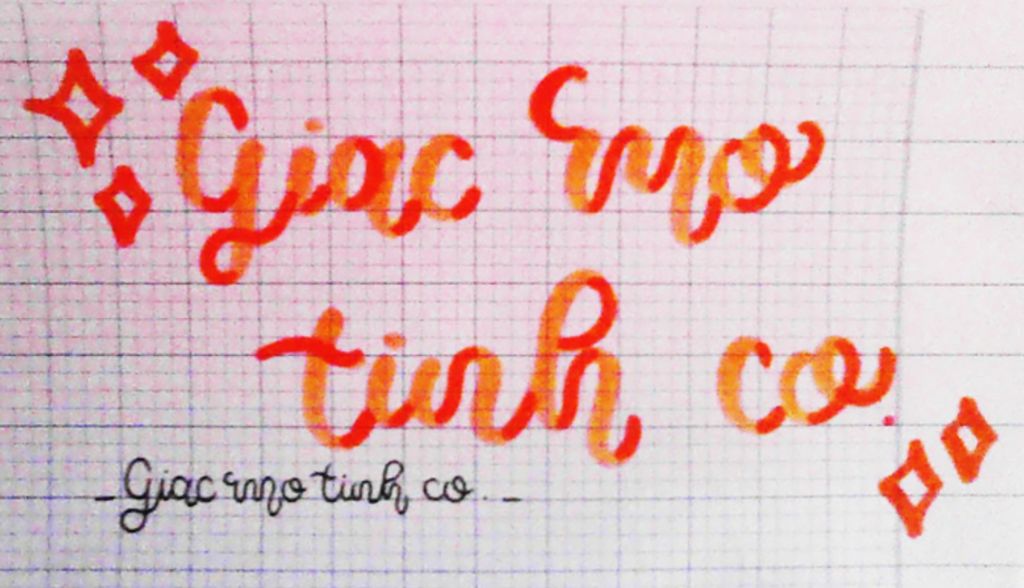 Giac mo
tinh co
- Giac mo tinh co. -